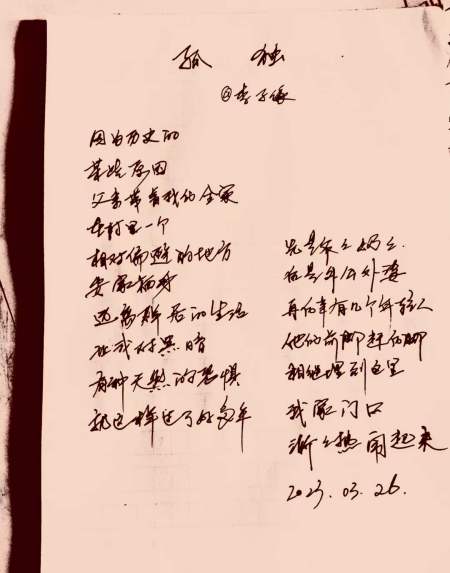 孤 独
@李不像
因为历史的
某些原因
父亲带着我们全家
在村里一个
相对偏避的地方
安家栖身
远离群居的生活
让我对黑暗
有种天然的恐惧
就这样过了好多年
先是爷爷奶奶
后是外公外婆
再后来有几个年轻人
他们前脚赶后脚
相继埋到这里
我家门口
渐渐热闹起来
2023.03.26.